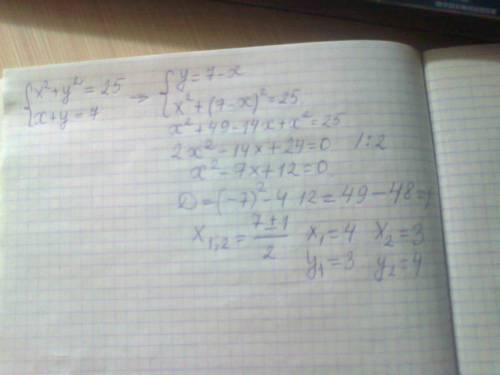 {x²+y²=25 → {y=7-x
{x+y=7 {x²+(7-x)²=25
x²+49-14x+x²=25
2x²-14x+24=0 /:2
x²-7x+12=0
D=(-7)²-4 12=49-48=1
x₁,₂=7±1/2 x₁=4 x₂=3
y₁=3 y₂=4